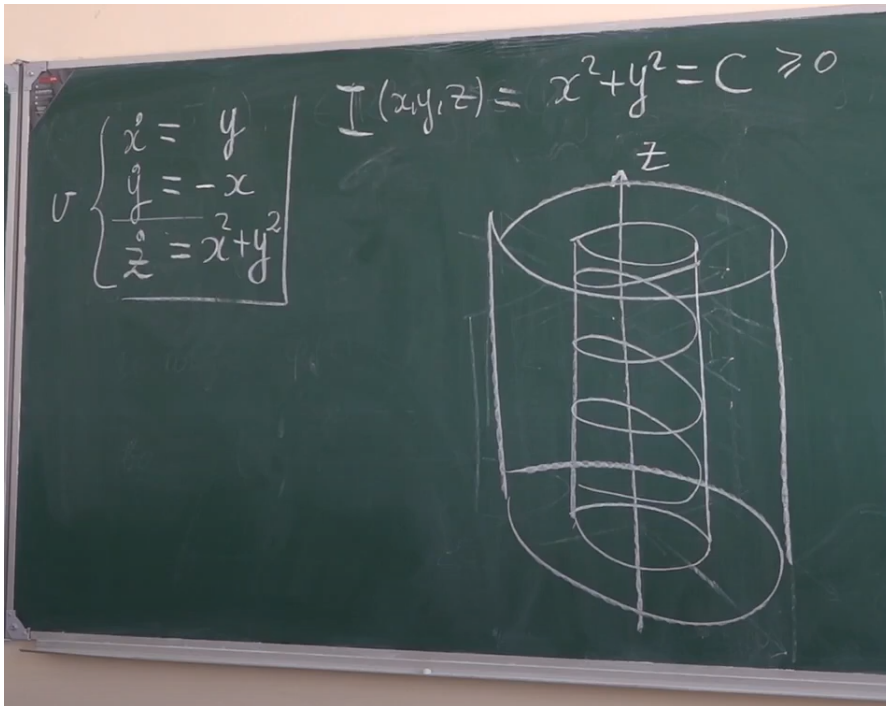 v { ẋ = y
ẏ = -x
ż = x²+y²
I(x,y,z) = x²+y² = C ⩾ 0
z